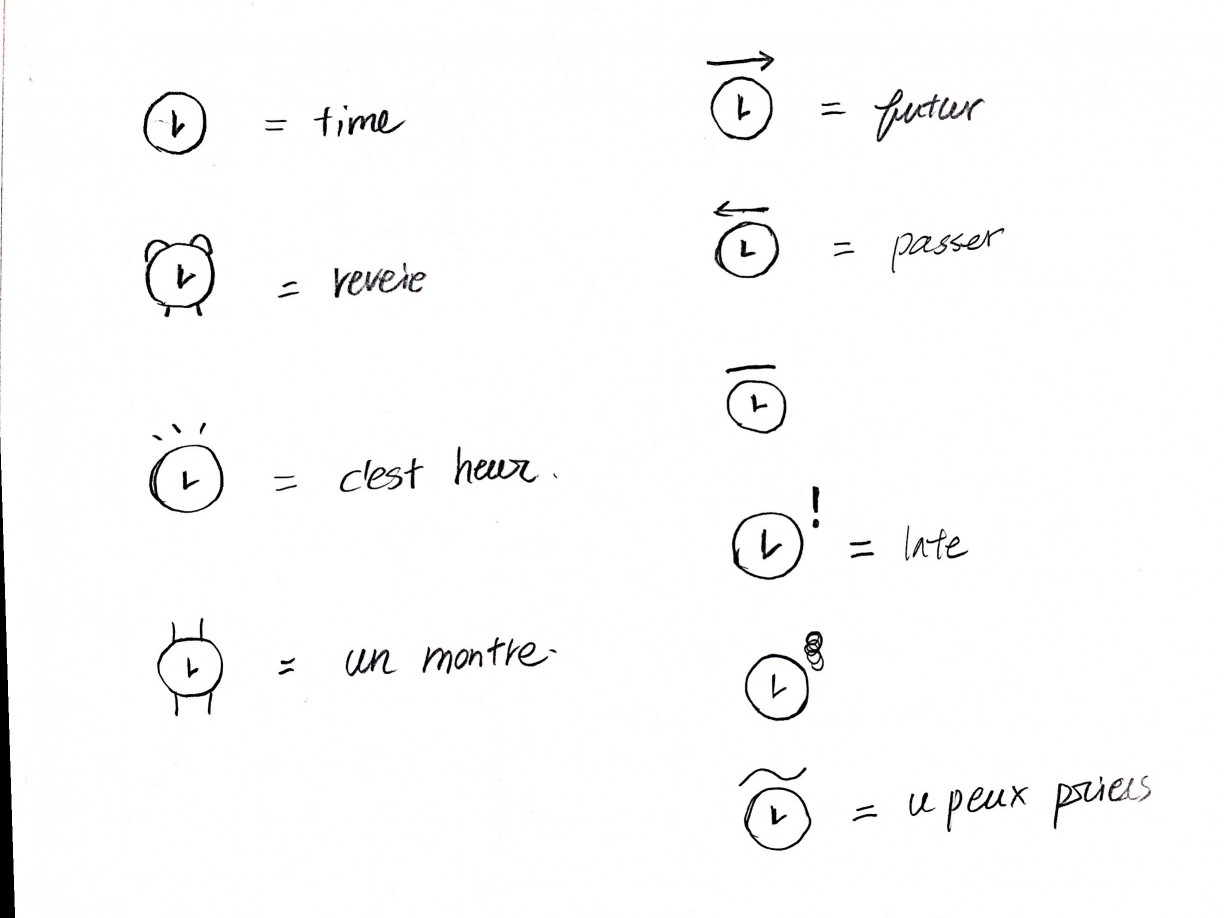 = time
= reveie
= c'est heur.
= un montre.
= futur
= passer
! = late
= u peux